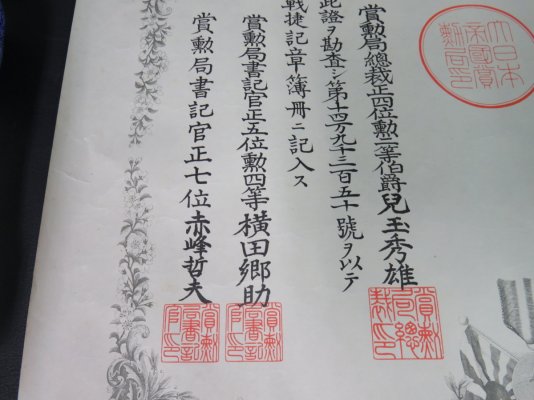 大日本
帝國賞
勳局印
賞勳局總裁正四位勳二等伯爵兒玉秀雄
賞勳局總裁印
此證ヲ勘査シ第十四万九千三百五十號ヲ以テ
戰捷記章簿冊ニ記入ス
賞勳局書記官正五位勳四等横田郷助
賞勳局書記官印
賞勳局書記官正七位赤峰哲夫
賞勳局書記官印